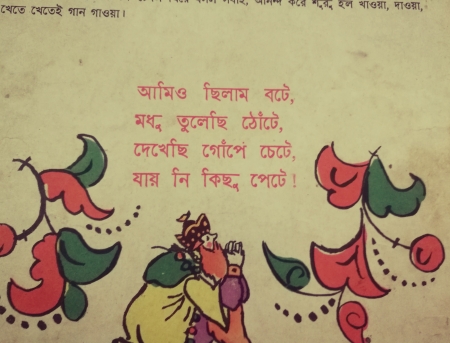 আনন্দ করে শুরু হল খাওয়া, দাওয়া,
খেতে খেতেই গান গাওয়া।
আমিও ছিলাম বটে,
মধু তুলেছি ঠোঁটে,
দেখেছি গোঁপে চেটে,
যায় নি কিছু পেটে!